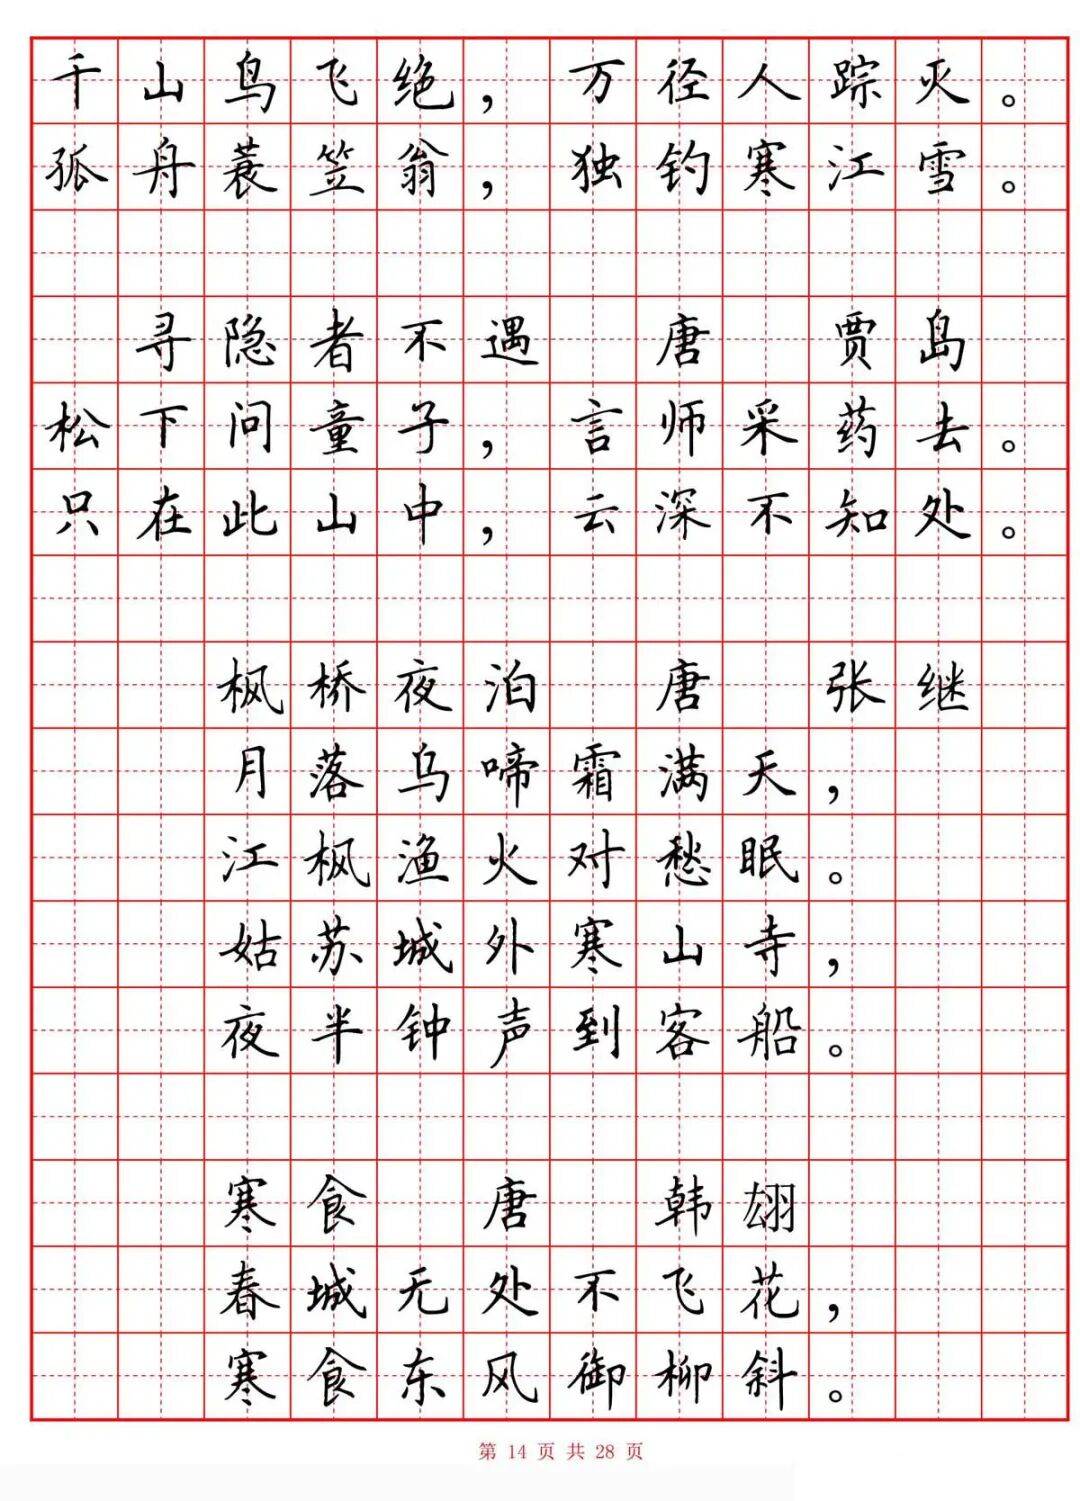 千山鸟飞绝，万径人踪灭。
孤舟蓑笠翁，独钓寒江雪。
寻隐者不遇 唐 贾岛
松下问童子，言师采药去。
只在此山中，云深不知处。
枫桥夜泊 唐 张继
月落乌啼霜满天，
江枫渔火对愁眠。
姑苏城外寒山寺，
夜半钟声到客船。
寒食 唐 韩翃
春城无处不飞花，
寒食东风御柳斜。
第 14 页 共 28 页